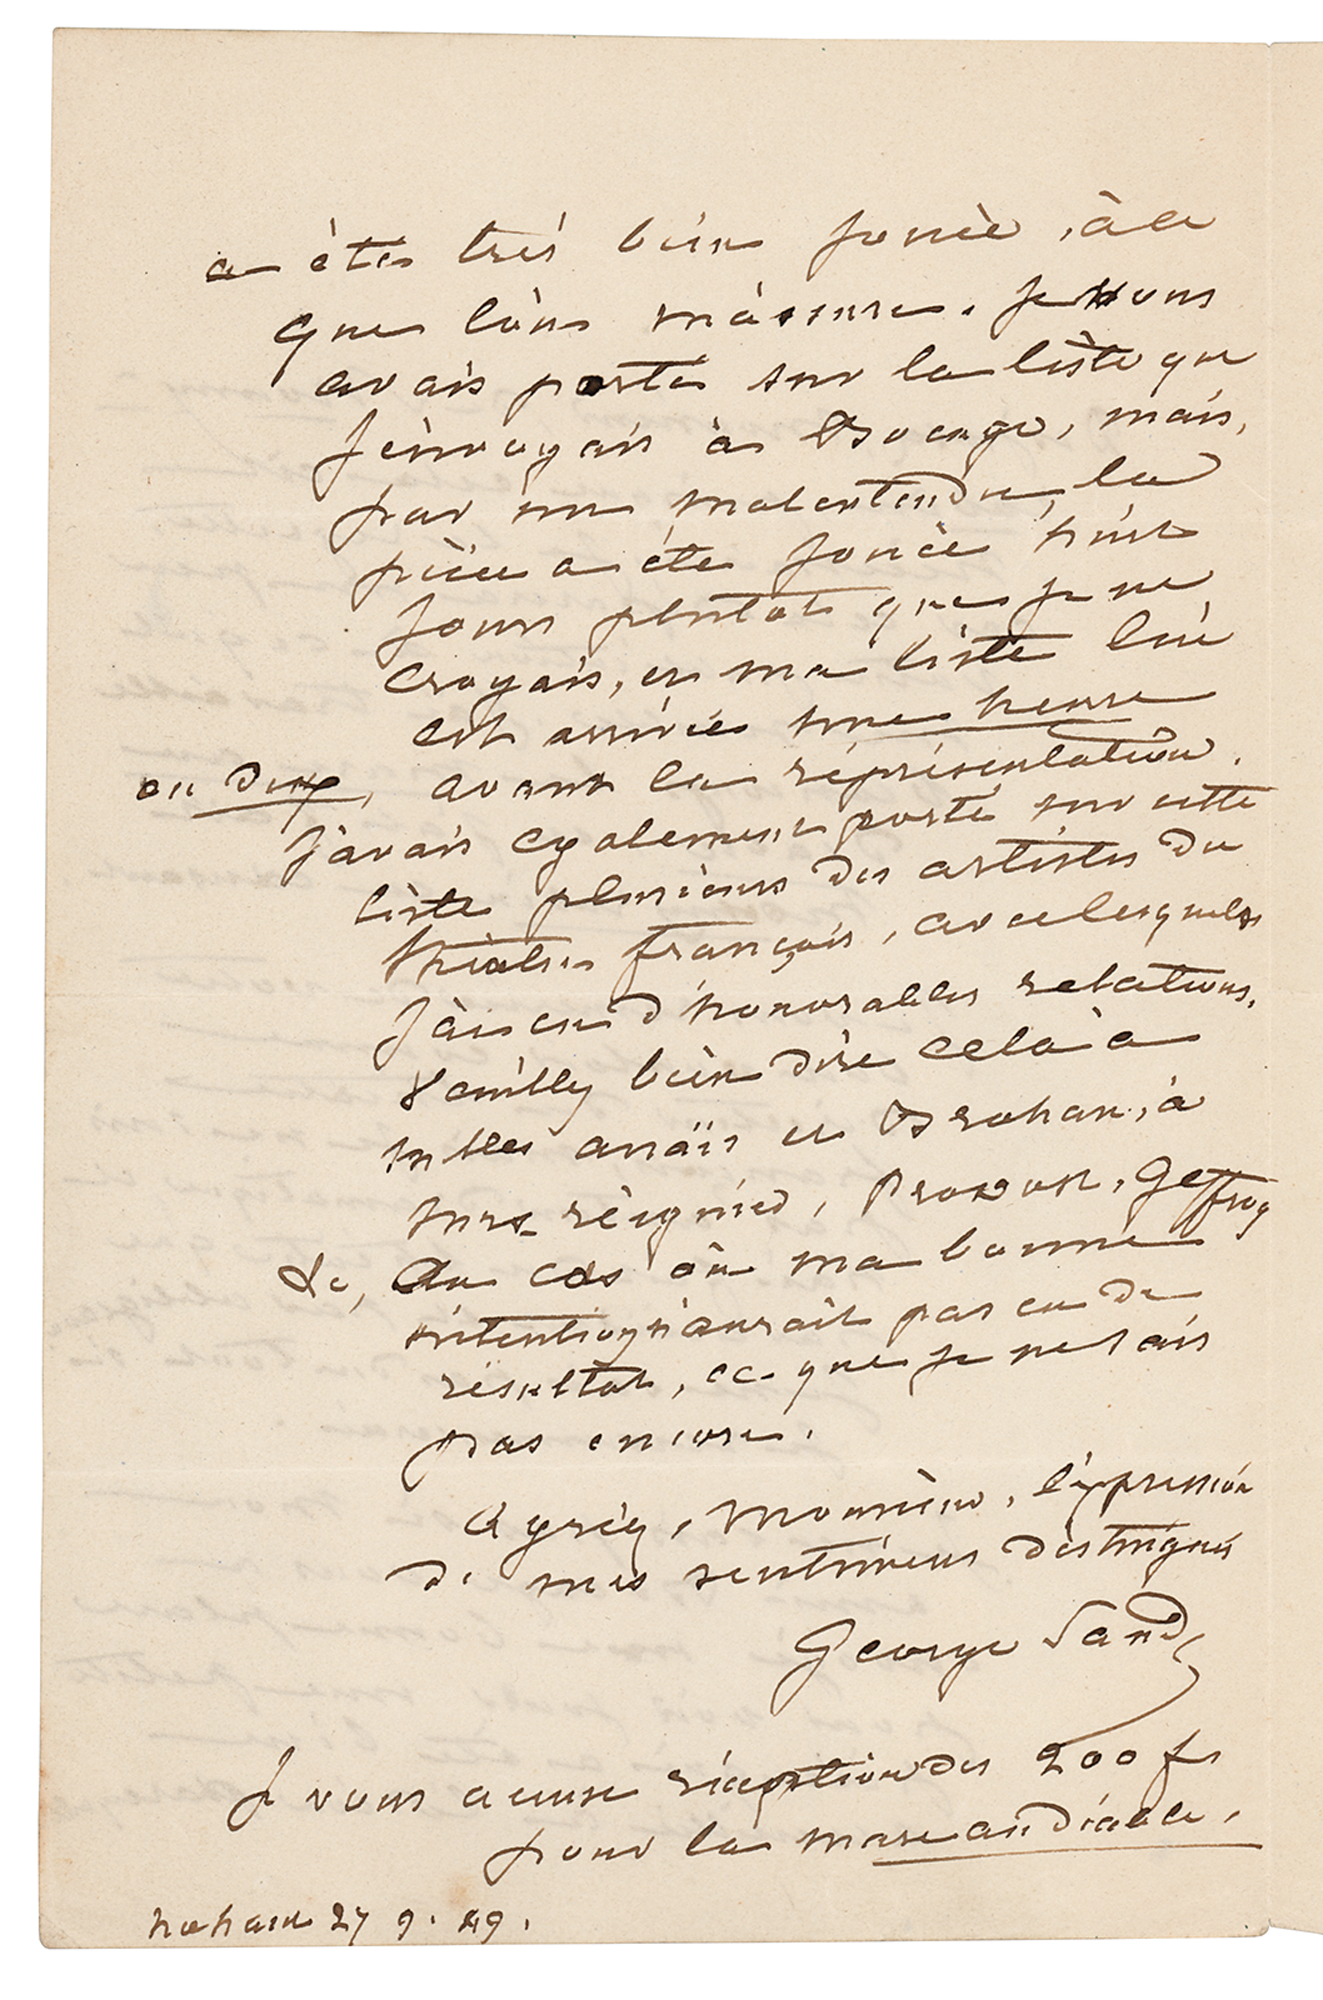 a été très bien jouée, à ce
que l'on m'assure. Je vous
avais porté sur la liste que
j'envoyais à Bocage, mais,
par un malentendu, la
pièce a été jouée huit
jours plutot que je ne
croyais, et ma liste lui
est arrivée une heure
ou deux, avant la représentation.
J'avais egalement porté sur cette
liste plusieurs des artistes du
théatre français, avec lesquels
j'ai eu d'honorables relations.
Veuillez bien dire cela à
Mlles anaïs et Brohan, à
Mrs régnier, Provost, Geffroy
&c, Au cas où ma bonne
intention n'aurait pas eu de
résultat, ce que je ne sais
pas encore.
Agréez, Monsieur, l'expression
de mes sentimens distingués
George Sand
Je vous accuse réception des 200 fr
pour la mare au diable.
nohant 27 9. 49.